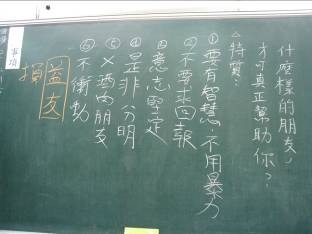 什麼樣的朋友，
才可真正幫助你？
△特質：
①要有智慧、不用暴力
②不要求回報
③意志堅定
④是非分明
⑤×酒肉朋友
⑥不衝動
益友
損
事項